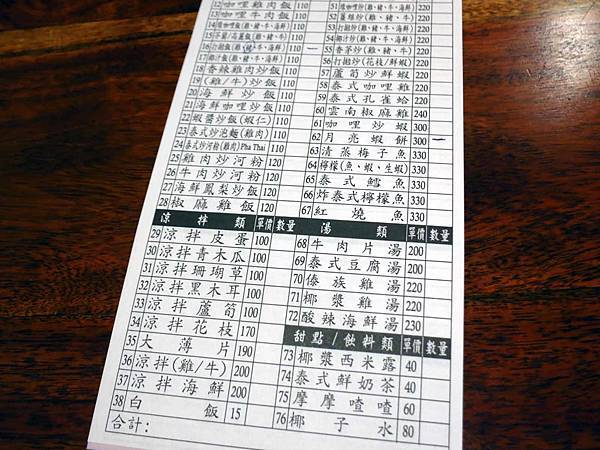 12 咖哩雞肉飯 110
13 咖哩牛肉飯 110
110
110
16 打拋炒飯(雞、豬、牛、海鮮) 110 一
17 椰汁飯(雞、豬、牛、海鮮) 110
18 香辣雞肉炒飯 110
19 (雞/牛)炒飯 110
20 海鮮炒飯 110
21 海鮮咖哩炒飯 110
22 蝦醬炒飯(蝦仁) 110
23 泰式炒泡麵(雞肉) 110
24 泰式炒河粉(雞肉)Pha Thai 110
25 雞肉炒河粉 120
26 牛肉炒河粉 120
27 海鮮鳳梨炒飯 120
28 椒麻雞飯 120
涼拌類 單價 數量
29 涼拌皮蛋 100
30 涼拌青木瓜 100
31 涼拌珊瑚草 100
32 涼拌黑木耳 100
33 涼拌蘆筍 100
34 涼拌花枝 170
35 大薄片 190
36 涼拌(雞/牛) 200
37 涼拌海鮮 200
38 白飯 15
合計:
51 220
52 220
53 打拋炒(雞、豬、牛、海鮮) 220
54 椰汁炒(雞、豬、牛、海鮮) 220
55 香茅炒(雞、豬、牛) 220
56 打拋炒(花枝/鮮蝦) 220
57 蘆筍炒鮮蝦 220
58 泰式咖哩雞 220
59 泰式孔雀蛤 220
60 雲南椒麻雞 240
61 咖哩炒蝦 300
62 月亮蝦餅 300 一
63 清蒸梅子魚 330
64 檸檬(魚、蝦、生蝦) 330
65 泰式鱈魚 330
66 炸泰式檸檬魚 330
67 紅燒魚 330
湯類 單價 數量
68 牛肉片湯 200
69 泰式豆腐湯 200
70 傣族雞湯 200
71 椰漿雞湯 200
72 酸辣海鮮湯 230
甜點/飲料類 單價 數量
73 椰漿西米露 40
74 泰式鮮奶茶 40
75 摩摩喳喳 60
76 椰子水 80